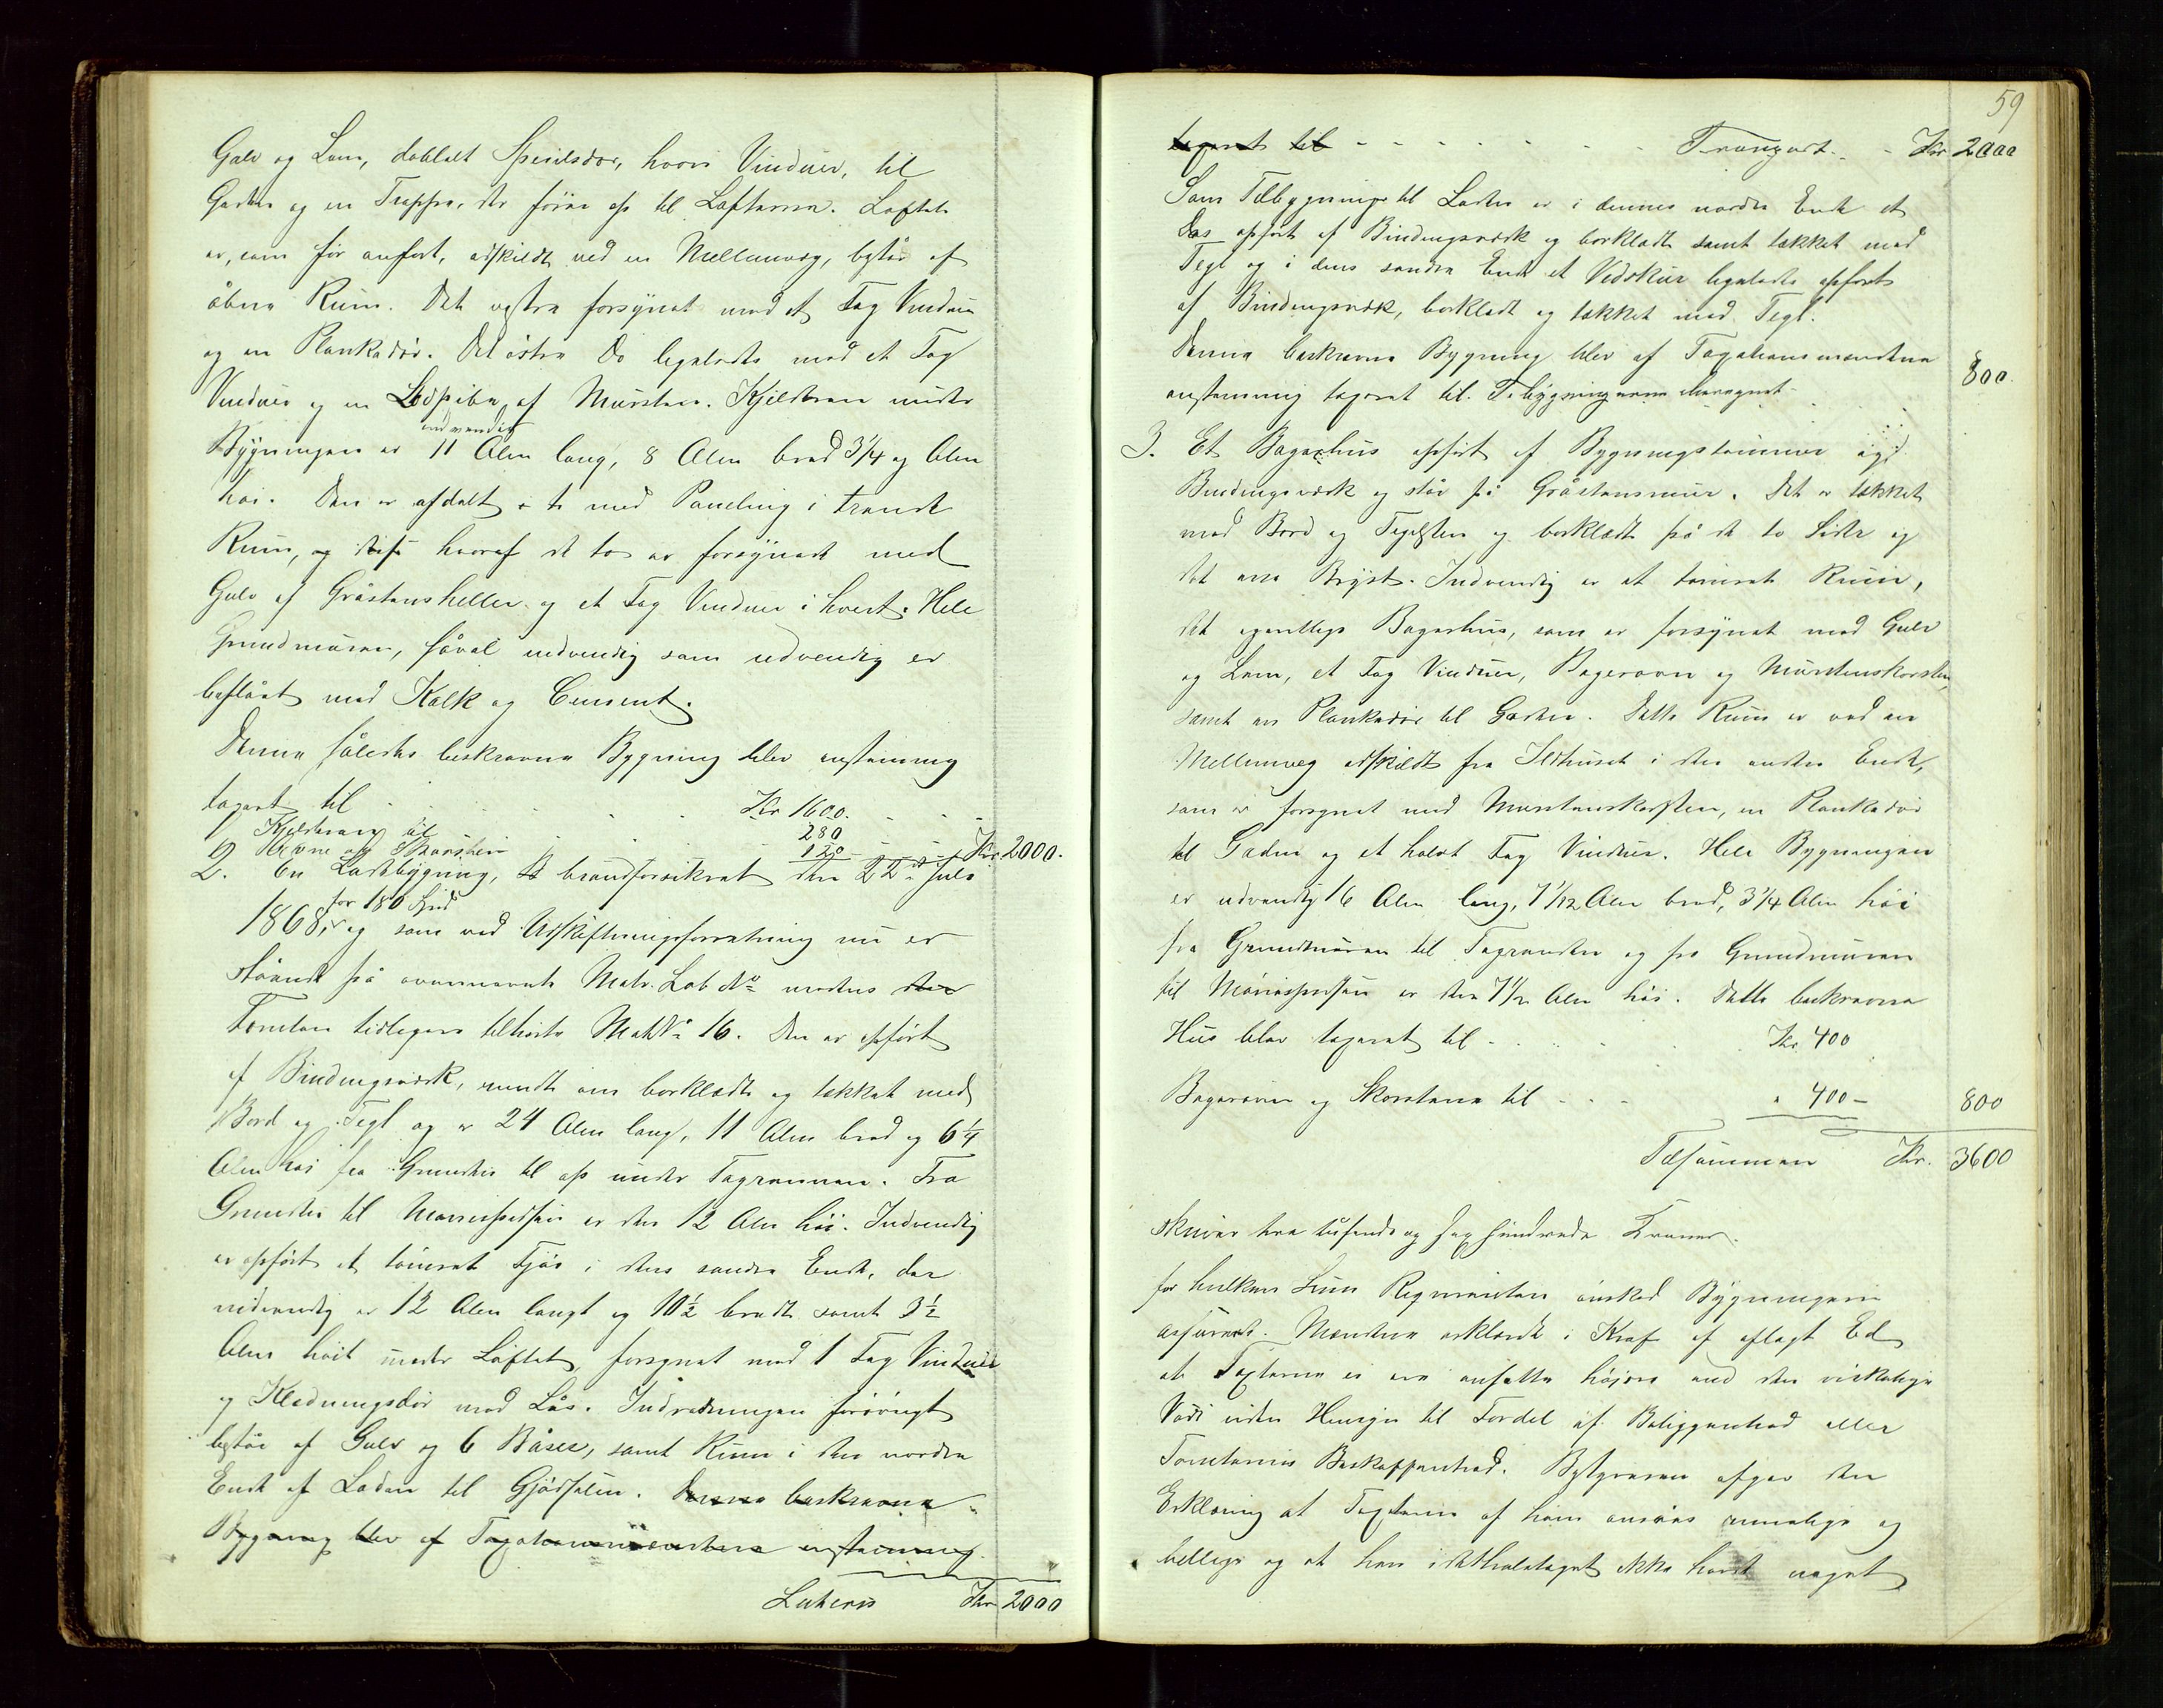 Gulv og Lem, dobbelt Speilsdør, hvori Vinduer, til
Gaden og en Trappe, der fører op til Lofterne. Loftet
er, som før anført, adskildt ved en Mellemvæg, består af
åbne Rum. Det vestre forsynet med et Fag Vinduer
og en Plankedør. Det østre Do ligeledes med et Fag
Vinduer og en Ledpibe af Mursten. Kjelderen under
indvendig
Bygningen er 11 Alen lang, 8 Alen bred 3 1/4 og Alen
høi. Den er afdelt i to med Paneling i trende
Rum, og hvoraf de to er forsynede med
Gulv af Gråstensheller og et Fag Vinduer i hvert. Hele
Grundmuren, såvel indvendig som udvendig er
beslået med Kalk og Cement.
Denne således beskrevne Bygning blev enstemmig
taxeret til Kr 1600.
Kjelderen til 280
Ovne og Skorsten 120 Kr 2000.
2. En Ladebygning, brandforsikret den 22de Juli
for 180 Spd
1868, og som ved Udskiftningsforretning nu er
stående på ovennævnte Matr. Lob No medens den
Tomten tidligere tilhørte Mat No 16. Den er opført
af Bindingsværk, rundt om bordklædt og tækket med
Bord og Tegl og er 24 Alen lang, 11 Alen bred og 6 1/4
Alen høi fra Grunden til op under Tagrennen. Fra
Grunden til Mønespidsen er den 12 Alen høi. Indvendig
er opført et tømret Fjøs i dens søndre Ende, der
indvendig er 12 Alen langt og 10 1/2 bredt samt 3 1/2
Alen høit under Loftet, forsynet med 1 Fag Vinduer
og Klædningsdør med Lås. Indredningen forøvrigt
består af Gulv og 6 Båse, samt Rum i den nordre
Ende af Laden til Gjødselen. Denne beskrevne
Bygning blev af Taxationsmændene enstemmig
Lateris Kr 2000
59
taxeret til - - - - - - - Transport. - Kr 2000
Som Tilbygning til Laden er i dennes nordre Ende et
Das opført af Bindingsværk og bordklædt samt tækket med
Tegl og i dens søndre Ende et Vedskur ligeledes opført
af Bindingsværk, bordklædt og tækket med Tegl.
Denne beskrevne Bygning blev af Taxationsmændene
enstemmig taxeret til. Tilbygningerne iberegnet 800.
3. Et Bagerhus opført af Bygningstømmer og
Bindingsværk og står på Gråstensmur. Det er tækket
med Bord og Teglsten og bordklædt på de to Sider og
det ene Bryst. Indvendig er et tømret Rum,
det egentlige Bagerhus, som er forsynet med Gulv
og Lem, et Fag Vinduer, Bagerovn og Murstensskorsten,
samt en Plankedør til Gaden. Dette Rum er ved en
Mellemvæg adskildt fra Ildhuset i den anden Ende,
som er forsynet med Murstensskorsten, en Plankedør
til Gaden og et halvt Fag Vinduer. Hele Bygningen
er udvendig 16 Alen lang, 7 1/12 Alen bred, 3 1/4 Alen høi
fra Grundmuren til Tagrenden og fra Grundmuren
til Mønespidsen er den 7 1/2 Alen høi. Dette beskrevne
Hus blev taxeret til - Kr. 400
Bagerovn og Skorstene til - - - " 400 - 800
Tilsammen Kr. 3600
skriver tre tusende og sex hundrede Kroner.
for hvilken Sum Requirenten ønsked Bygningerne
assureret. Mændene erklærede i Kraft af aflagt Ed
at Taxterne ei ere ansatte høiere end den virkelige
Værdi uden Hensyn til Fordel af Beliggenhed eller
Tomternes Beskaffenhed. Bestyreren afgav den
Erklæring at Taxterne af ham ansåes rimelige og
billige og at han i det hele taget ikke havde noget